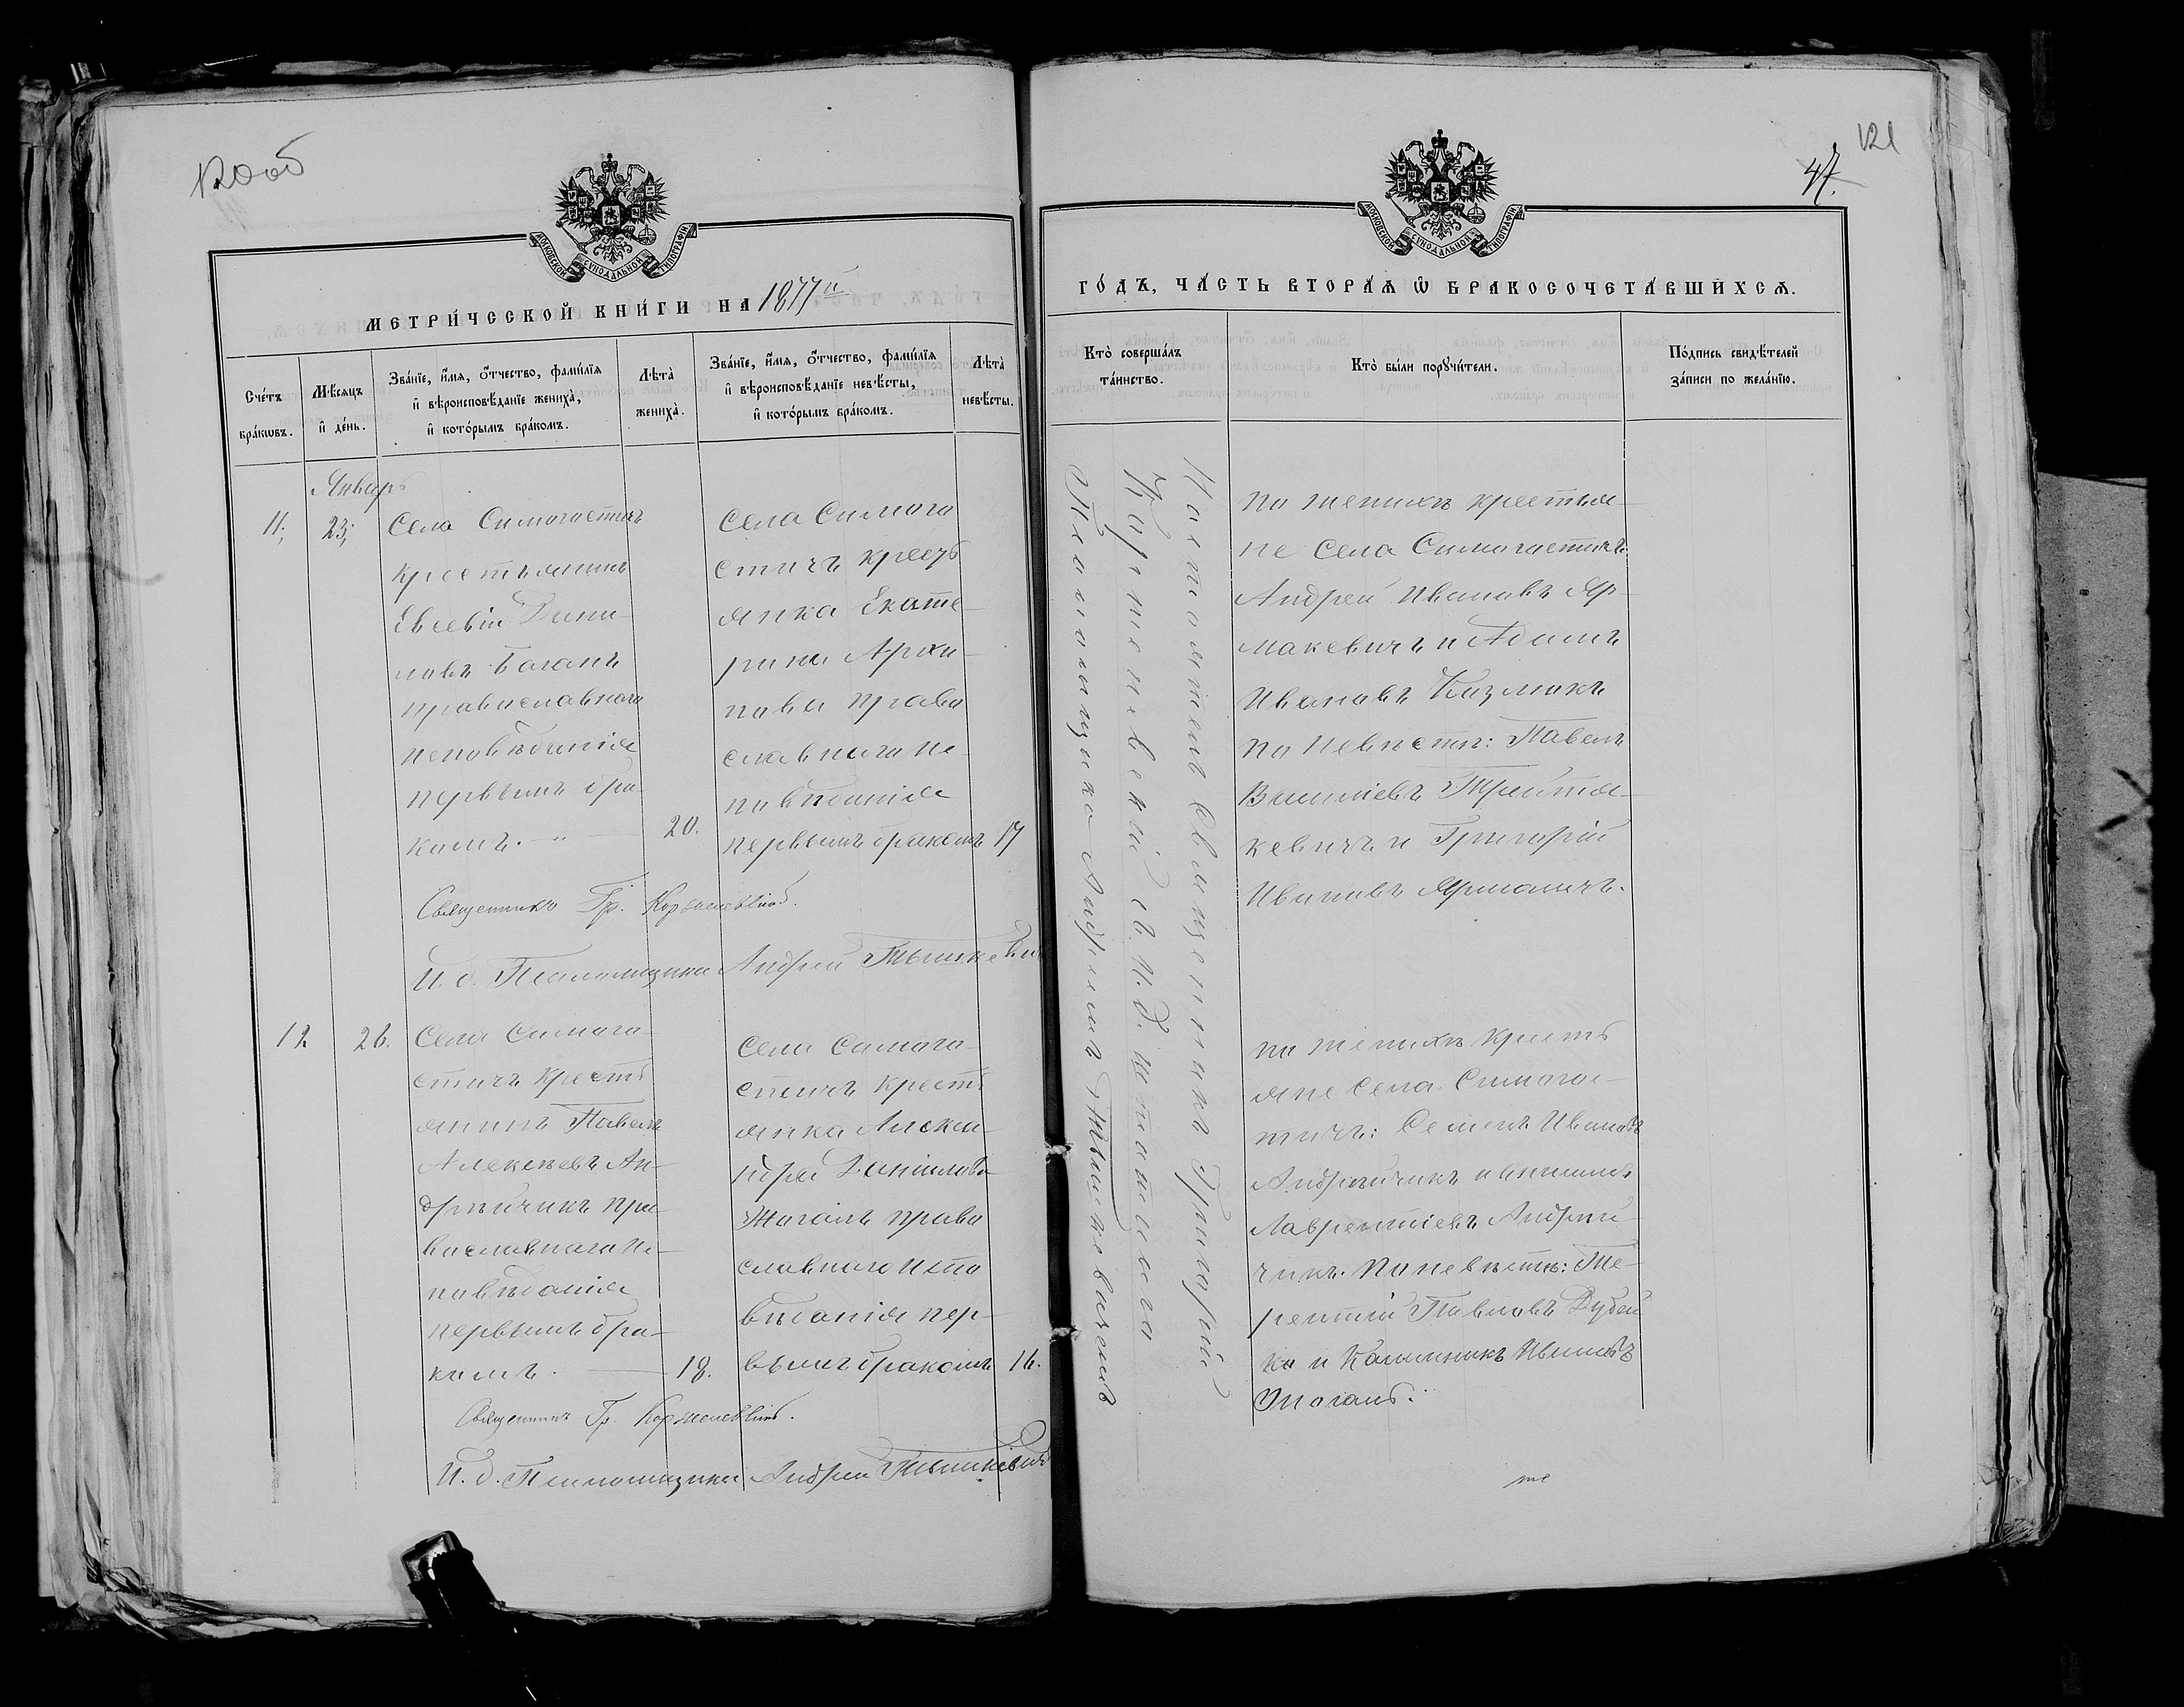 120об
МОСКОВСКОЙ СѴНОДАЛЬНОЙ ТИПОГРАФІИ
МЕТРИ́ЧЕСКОЙ КНИ́ГИ НА 1877й
Сче́тъ бра́кѡвъ.
Мѣ́сяцъ и҆ де́нь.
Зва́нїе, и҆́мѧ, ѻ҆́тчество, фами́лїѧ
и҆ вѣроисповѣ́данїе жениха̀,
и҆ кото́рымъ бра́комъ.
Лѣ́та̀ жениха̀.
Зва́нїе, и҆́мѧ, ѻ҆́тчество, фами́лїѧ
и҆ вѣроисповѣ́данїе невѣ́сты,
и҆ кото́рымъ бра́комъ.
Лѣ́та̀ невѣ́сты.
Январь
11;
23;
Села Симогостичъ
крестьянинъ
Евсевій Дани-
ловъ
православнаго
исповѣданія
первымъ бра-
комъ. —"—
20.
Села Симого
стичъ кресть
янка Екате-
рина Архи-
пова право
славнаго ис-
повѣданія
первымъ бракомъ
17
Священникъ Гр.
И. д. Псаломщика Андрей Тышкевичъ
12
26.
Села Симого-
стичъ кресть
янинъ Павелъ
Алексѣевъ Ан-
дрейчикъ пра-
вославнаго ис-
повѣданія
первымъ бра-
комъ. —
18.
Села Симого-
стичъ кресть
янка Алекса-
ндра Данилова
Жоголъ право
славнаго испо
вѣданія пер-
вымъ бракомъ
16.
Священникъ Гр.
И. д. Псаломщика Андрей Тышкевичъ
121
47.
МОСКОВСКОЙ СѴНОДАЛЬНОЙ ТИПОГРАФІИ
ГО́ДЪ, ЧА́СТЬ ВТОРА́Ѧ Ѽ БРАКОСОЧЕТА́ВШИХСѦ.
Кто̀ соверша́лъ
та́инство.
Кто̀ бы́ли порꙋчи́тели.
По́дпись свидѣ́телей
за́писи по жела́нїю.
Настоятель Священникъ Григорій
съ И. д.
Псаломщика Андреемъ Тышкевичемъ
По женихѣ крестья-
не Села Симогостичъ:
Андрей Ивановъ Яр-
макевичъ и Адамъ
Ивановъ Козмакъ
По невѣстѣ: Павелъ
кевичъ и Григорій
Ивановъ
По женихѣ кресть
яне Села Симогос-
тичъ: Семенъ Ивановъ
Андрейчикъ и
Лаврентіевъ Андрей-
чикъ. По невѣстѣ: Те-
рентій Павловъ Дубей
ко и Ивановъ
же